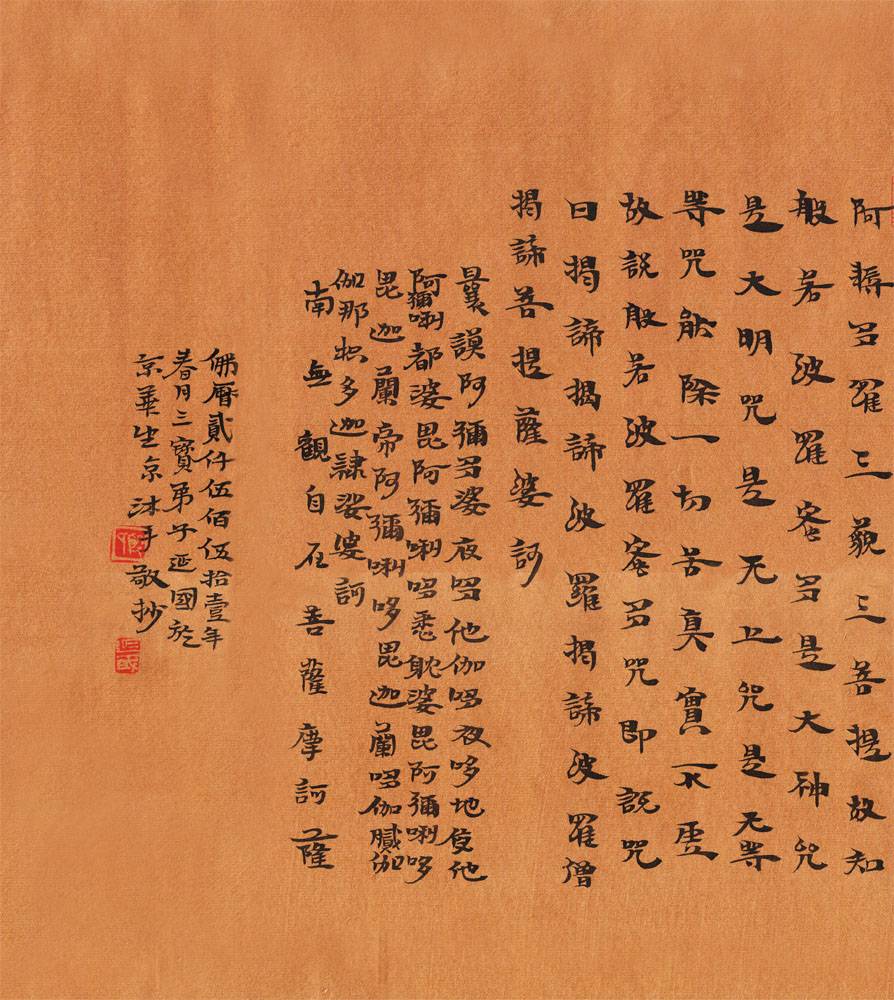 阿耨多羅三藐三菩提故知
般若波羅密多是大神咒
是大明咒是无上咒是无等
等咒能除一切苦真實不虛
故說般若波羅密多咒即說咒
曰揭諦揭諦波羅揭諦波羅僧
揭諦菩提薩婆訶
曩謨阿彌多婆夜哆他伽哆夜哆地夜他
阿彌唎都婆毘阿彌唎哆悉耽婆毘阿彌唎哆
毘迦蘭帝阿彌唎哆毘迦蘭哆伽膩伽
伽那枳多迦隸娑婆訶
南無觀自在菩薩摩訶薩
佛曆貳仟伍佰伍拾壹年
春月三寶弟子延國於
京華生京沐手敬抄